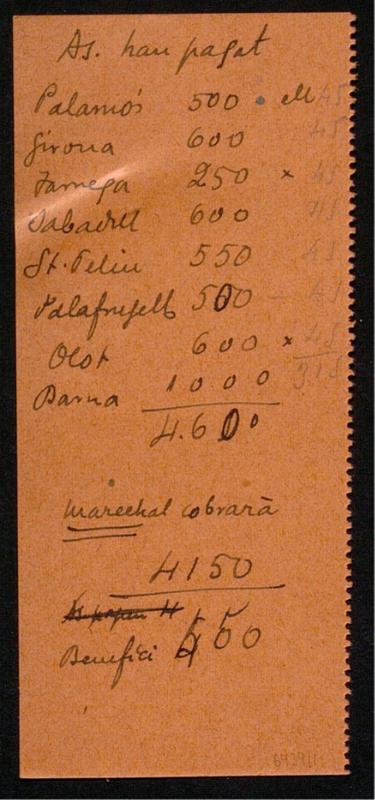 As. han pagat
Palamós 500 • ell 45
Girona 600 45
Tarrega 250 x 45
Sabadell 600 45
St. Feliu 550 45
Palafrugell 500 - 45
Olot 600 x 45
315
Barna 1000
4.600
Marechal cobrarà
4150
Benefici 450
6439/1